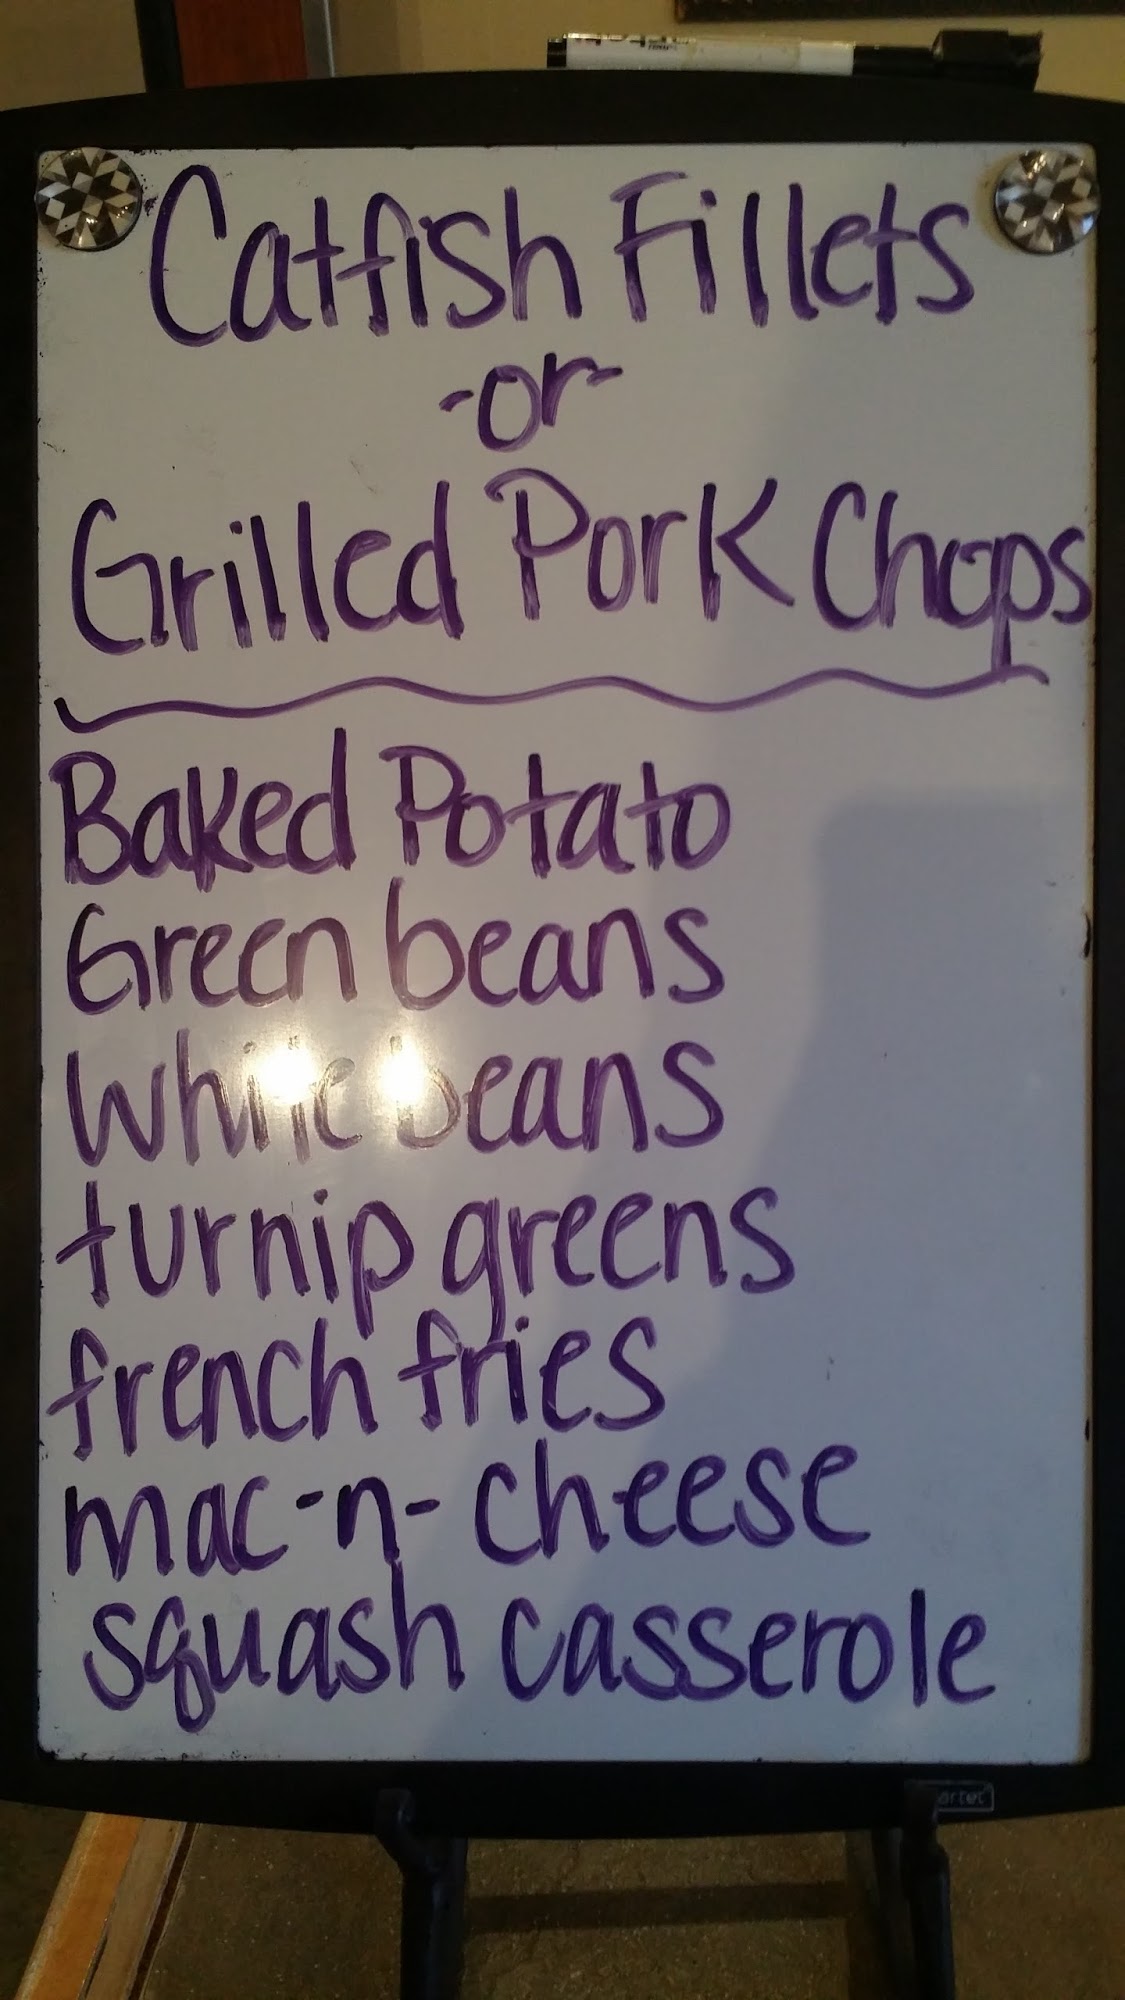 Catfish Fillets
-or-
Grilled Pork Chops
Baked Potato
Green beans
white beans
turnip greens
french fries
mac-n-cheese
squash casserole